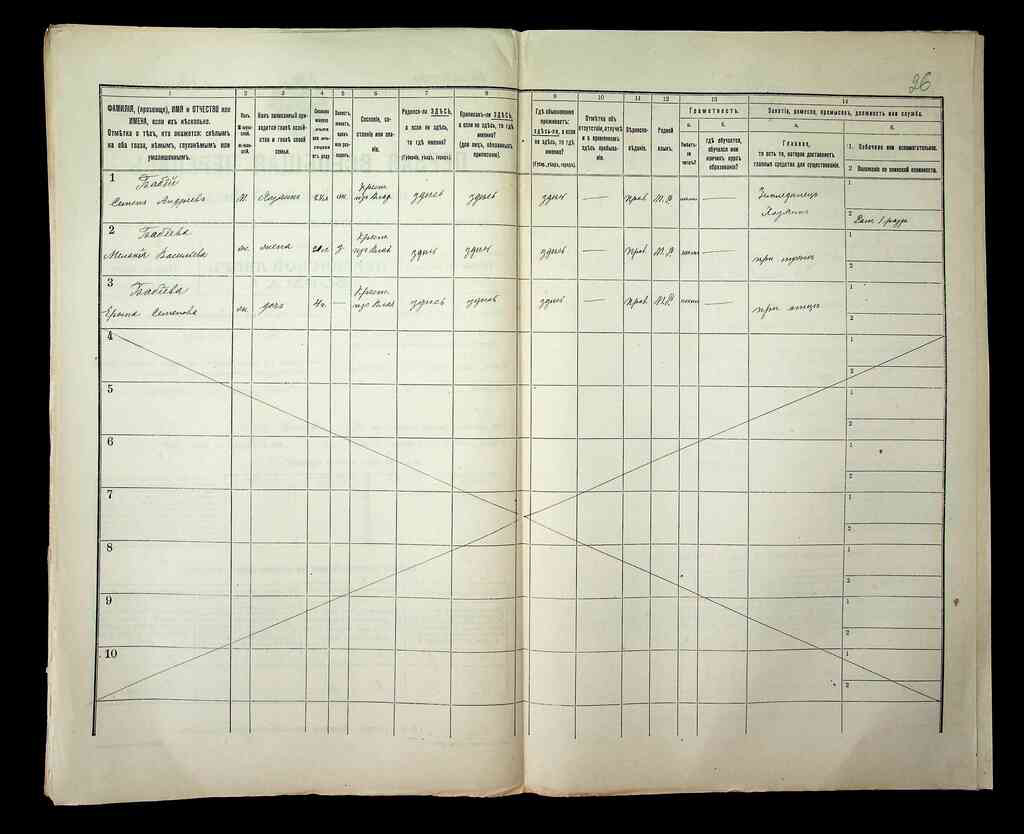 26
1 2 3 4 5 6 7 8 9 10 11 12 13 14
ФАМИЛІЯ, (прозвище), ИМЯ и ОТЧЕСТВО или
ИМЕНА, если ихъ нѣсколько.
Отмѣтка о тѣхъ, кто окажется: слѣпымъ
на оба глаза, нѣмымъ, глухонѣмымъ или
умалишеннымъ.
Полъ.
М-мужской.
Ж-женскій.
Какъ записанный приходится
главѣ хозяйства
и главѣ своей
семьи.
Сколько
минуло
лѣтъ
или мѣсяцевъ
отъ роду
Сословіе, состояніе
или званіе.
Родился-ли ЗДѢСЬ,
а если не здѣсь,
то гдѣ именно?
(Губернія, уѣздъ, городъ).
Приписанъ-ли ЗДѢСЬ,
а если не здѣсь, то гдѣ
именно?
(для лицъ, обязанныхъ
припискою).
Гдѣ обыкновенно
проживаетъ:
здѣсь-ли, а если
не здѣсь, то гдѣ
именно?
(Губер., уѣздъ, городъ).
Отмѣтка объ
отсутствіи, отлучкѣ
и о временномъ
здѣсь пребываніи.
Вѣроисповѣданіе.
Родной
языкъ.
Грамотность.
а.
Умѣетъ-ли
читать?
б.
гдѣ обучается,
обучался или
кончилъ курсъ
образованія?
Занятіе, ремесло, промыселъ, должность или служба.
а.
Главное,
то есть то, которое доставляетъ
главныя средства для существованія.
б.
1. Побочное или вспомогательное.
2 Положеніе по воинской повинности.
1 Бабій
Семенъ Андреевъ м. Хозяинъ Крест. здѣсь здѣсь здѣсь — Прав М.Р — Земледѣлецъ
Хозяинъ
1
2
2 Бабіева
Меланія Васильева ж. жена Крест. здѣсь здѣсь здѣсь — Прав М.Р — при мужѣ
1
2
3 Бабіева
Семенова ж. дочь 4 — Крест. здѣсь здѣсь здѣсь — Прав М.Р — при отцѣ
1
2
4 1
2
5 1
2
6 1
2
7 1
2
8 1
2
9 1
2
10 1
2